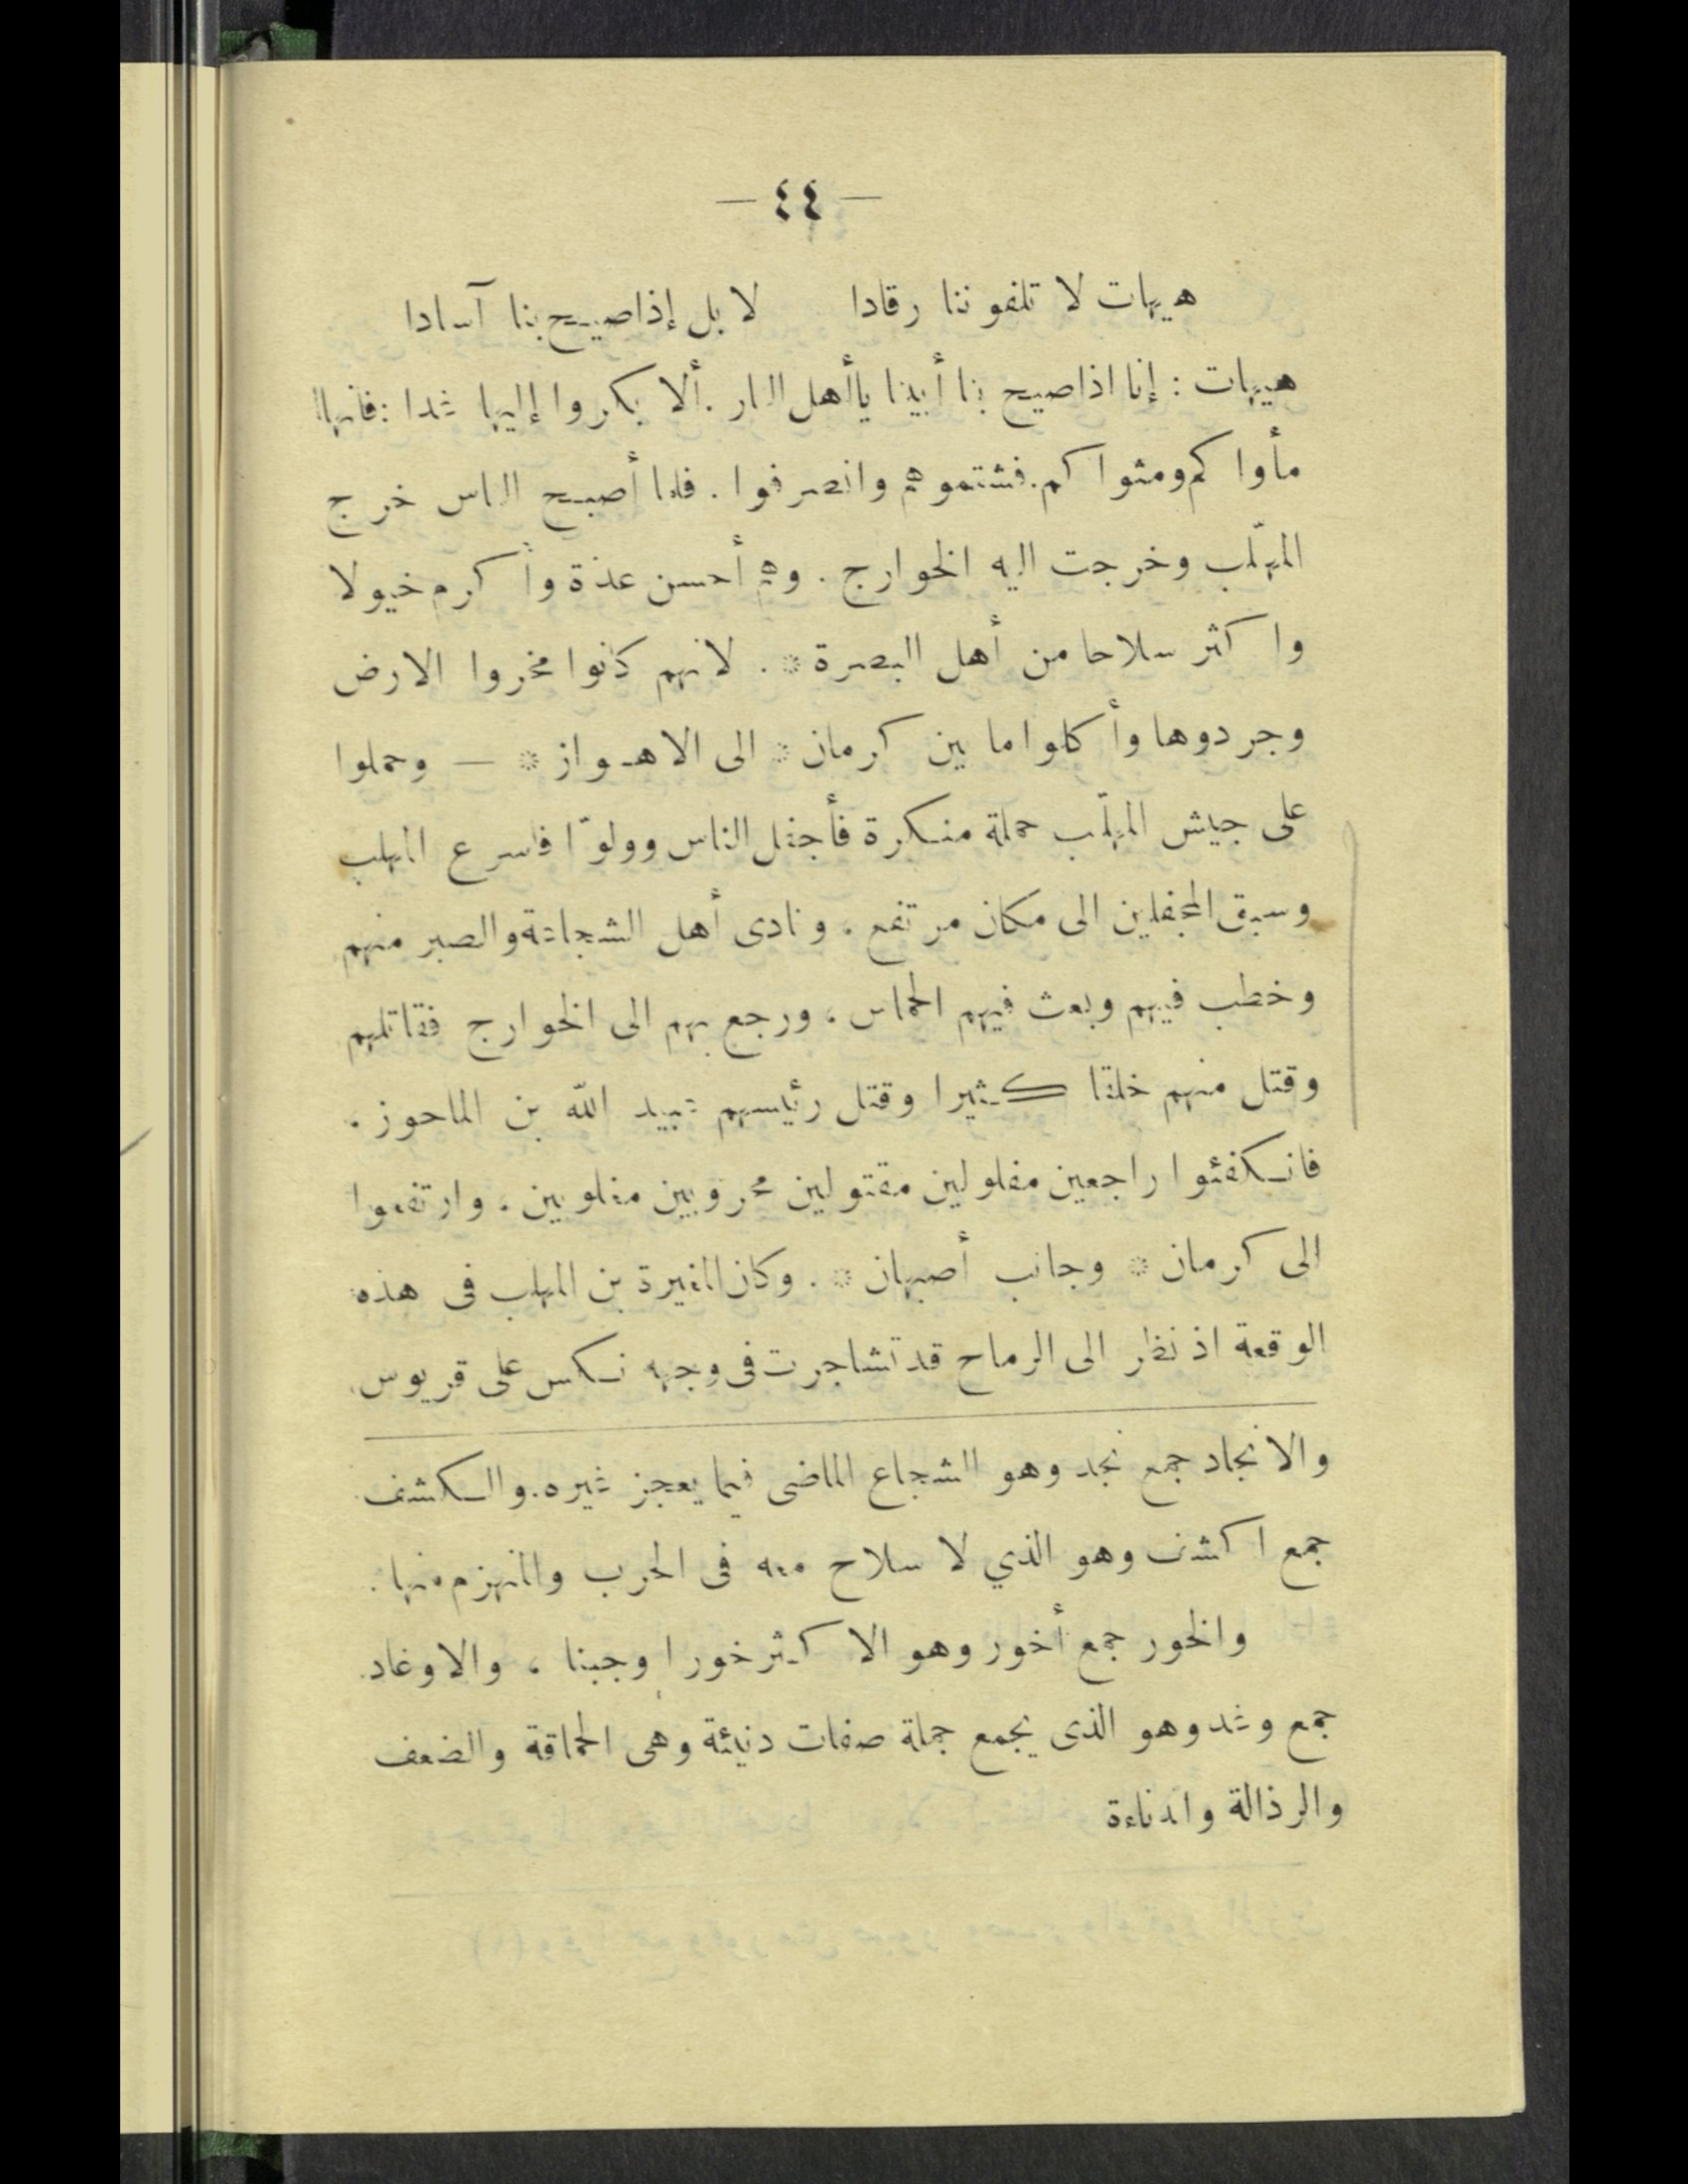 — ٤٤ —
هيهات لا تلفوننا رقادا لا بل إذا صيح بنا آسادا
هيهات : إنا اذا صيح بنا أبينا ياأهل النار . ألا بكروا إليها غدا : فانها
مأواكم ومثواكم . فشتموهم وانصرفوا . فلما أصبح الناس خرج
المهلّب وخرجت اليه الخوارج . وهم أحسن عدّة وأكرم خيولا
واكثر سلاحا من أهل البصرة * . لانهم كانوا مخروا الارض
وجردوها وأكلوا ما بين كرمان * الى الاهواز * — وحملوا
على جيش المهلّب حملة منكرة فأجفل الناس وولوّا فاسرع المهلب
وسبق المجفلين الى مكان مرتفع . ونادى أهل الشجاعة والصبر منهم
وخطب فيهم وبعث فيهم الحماس ، ورجع بهم الى الخوارج فقاتلهم
وقتل منهم خلقا كثيرا وقتل رئيسهم عبيد الله بن الماحوز .
فانكفئوا راجعين مفلولين مقتولين محروبين مغلوبين . وارتفعوا
الى كرمان * وجانب أصبهان * . وكان المغيرة بن المهلب فى هذه
الوقعة اذ نظر الى الرماح قد تشاجرت فى وجهه نكس على قربوس
والانجاد جمع نجد وهو الشجاع الماضى فيما يعجز غيره . والكشف
جمع اكشف وهو الذي لا سلاح معه فى الحرب والمنهزم منها .
والخور جمع أخور وهو الاكثر خورا وجبنا ، والاوغاد
جمع وغد وهو الذى يجمع جملة صفات دنيئة وهى الحماقة والضعف
والرذالة والدناءة